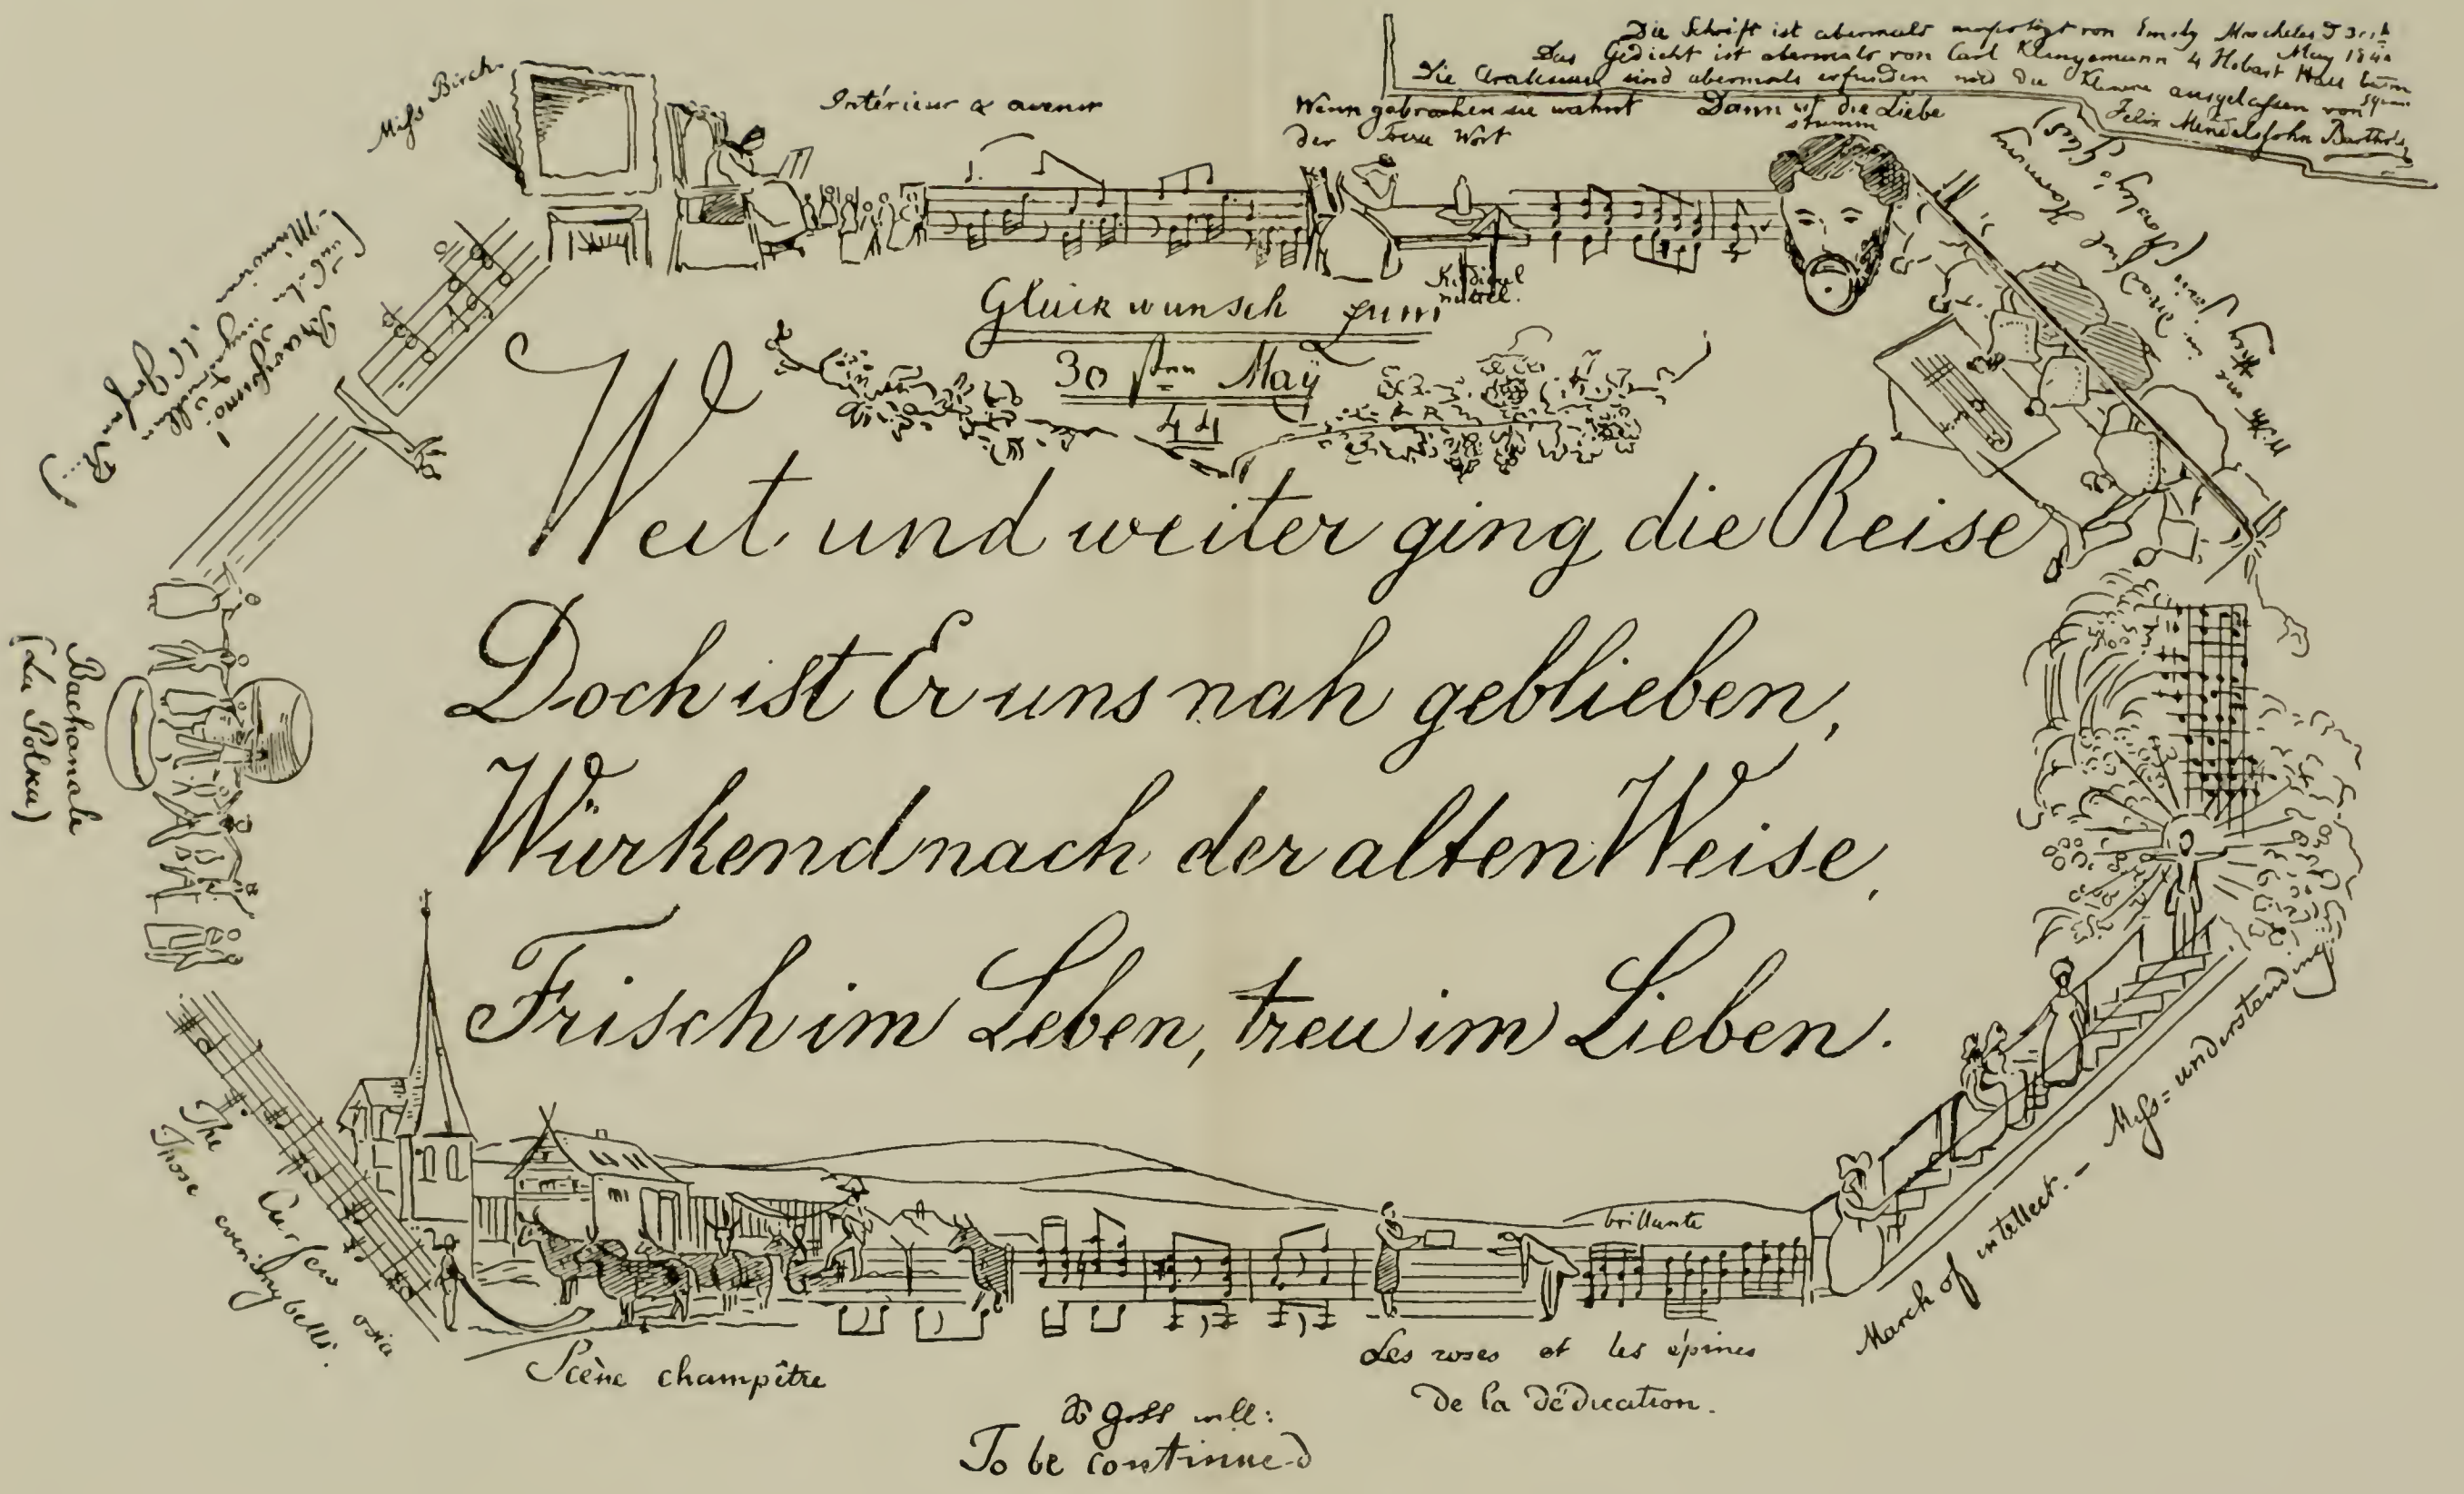 Die Schrift ist abermals von Emily Moscheles
Das Gedicht ist abermals von Carl Klingemann 4 Hobart
Die sind abermals erfunden und die Kleine ausgelassen von
Felix Mendelssohn Barthol
Miss Birch.
Intérieur & avenir
Wenn gebrochen sie wähnt
der Treue Wort
Dann ist die Liebe
stumm
Glückwunsch zum
30sten May
44
Weit und weiter ging die Reise
Doch ist Er uns nah geblieben,
Würkend nach der alten Weise,
Frisch im Leben, treu im Lieben.
Bachanale
(La Polka)
The Curfew
Those evening bells.
Scène champêtre
brillante
Les roses et les épines
de la dédication.
March of intellect. - Miss=understanding
will:
To be continued